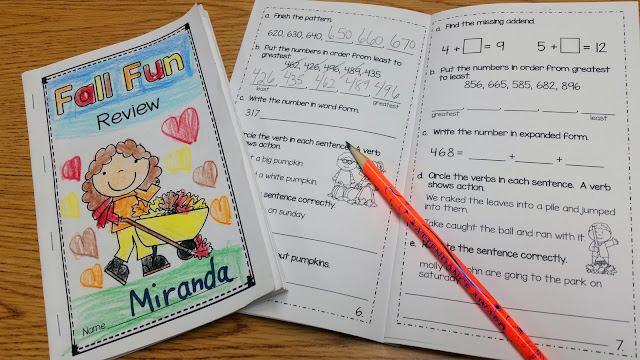 Fall Fun
Review
Miranda
Name
a. Finish the pattern.
620, 630, 640, 650 660 670
b. Put the numbers in order from least to
greatest.
462, 426, 496, 489, 435
426 435 462 489 496
least greatest
c. Write the number in word form.
317
the verb in each sentence. A verb
shows action.
a big pumpkin.
a white pumpkin.
sentence correctly.
on sunday
pumpkins.
6.
a. Find the missing addend.
4 + = 9 5 + = 12
b. Put the numbers in order from greatest
to least.
856, 665, 585, 682, 896
greatest least
c. Write the number in expanded form.
468 = + +
d. Circle the verbs in each sentence. A verb
shows action.
We raked the leaves into a pile and jumped
into them.
Jake caught the ball and ran with it.
e. the sentence correctly.
molly are going to the park on
7.
ATTENDANCE AWARD